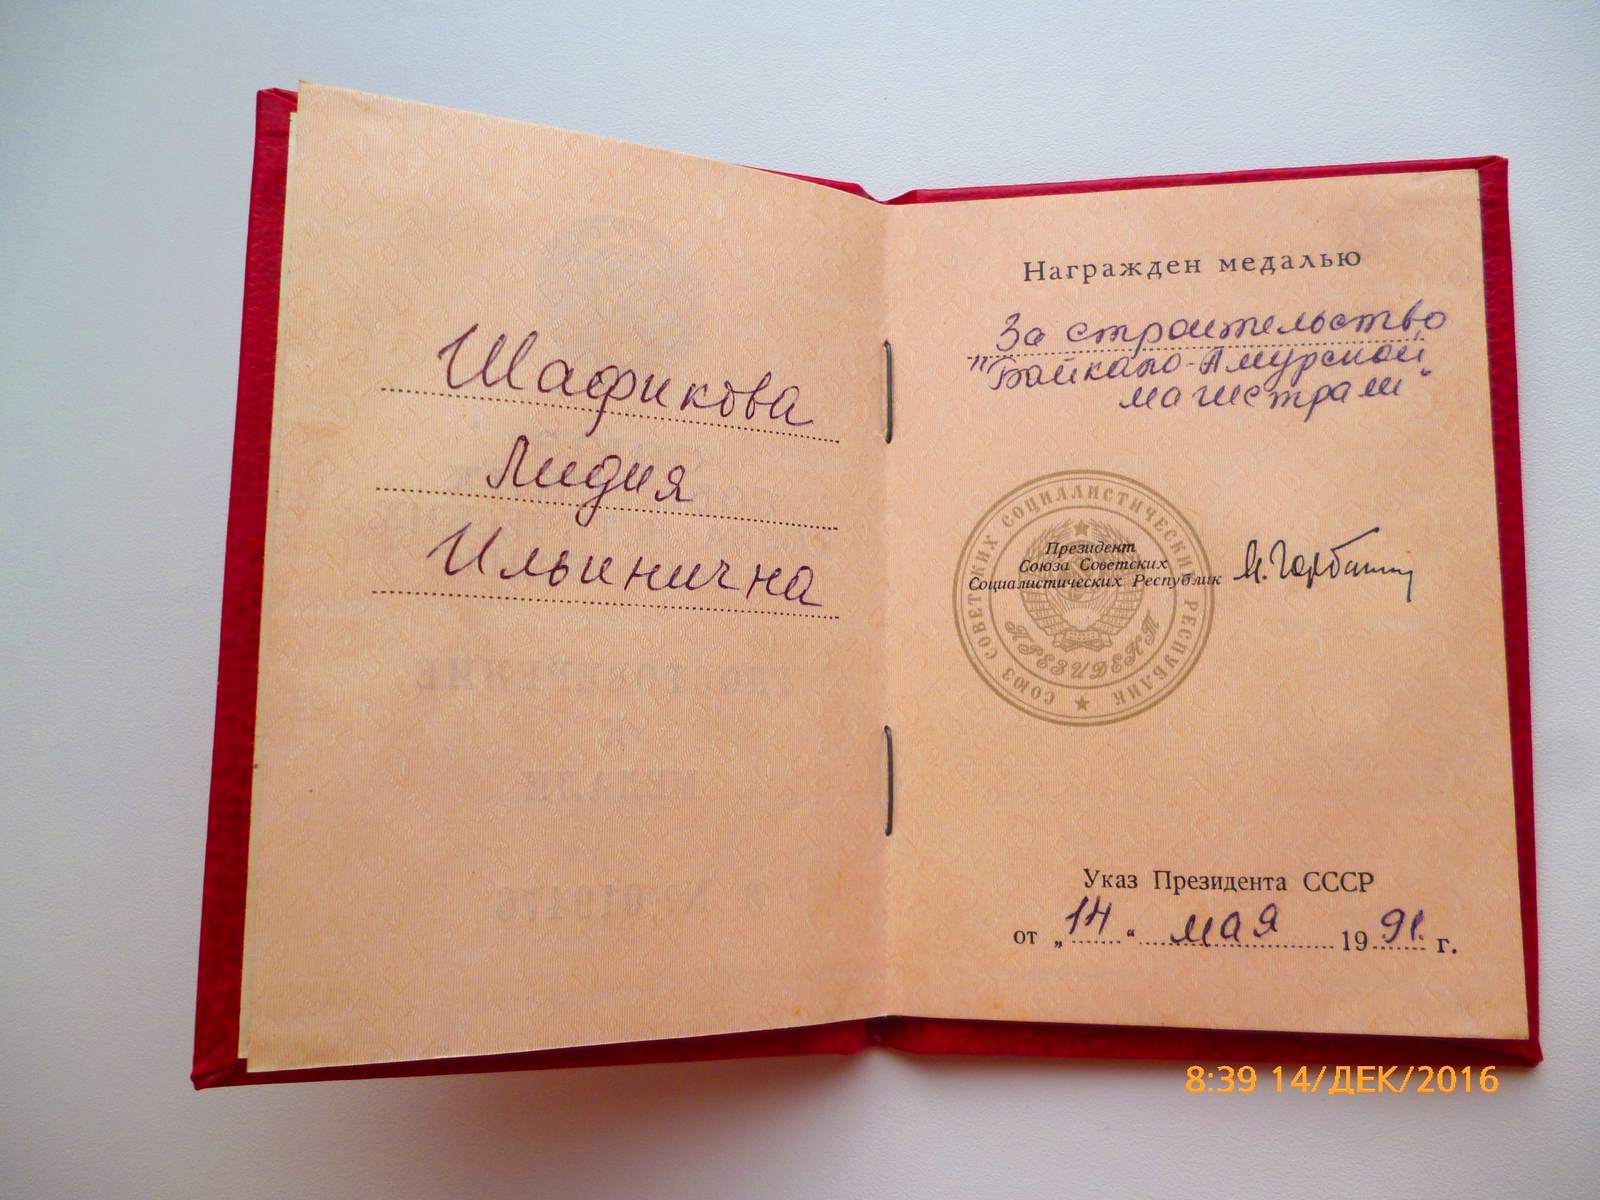 Шафикова
Лидия
Ильинична
Награжден медалью
За строительство
"Байкало-Амурской
магистрали"
СОЮЗ СОВЕТСКИХ СОЦИАЛИСТИЧЕСКИХ РЕСПУБЛИК
ПРЕЗИДЕНТ
Президент
Союза Советских
Социалистических Республик
М. Горбачев
Указ Президента СССР
от „14“ мая 1991. г.
8:39 14/ДЕК/2016